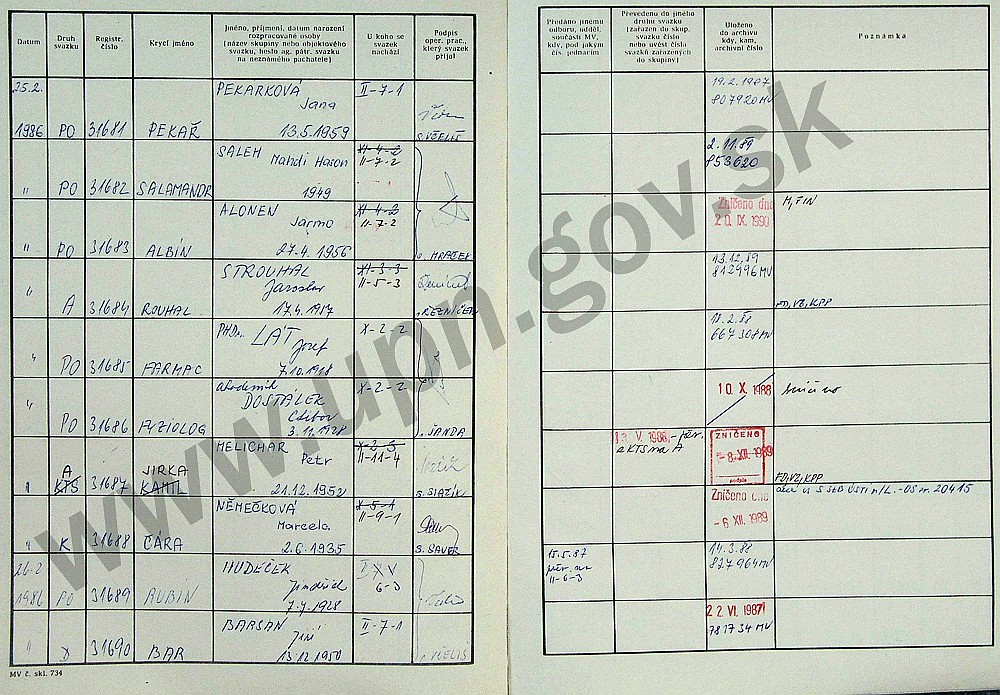 Datum
Druh svazku
Registr. číslo
Krycí jméno
Jméno, příjmení, datum narození
rozpracované osoby
(název skupiny nebo objektového
svazku, heslo ag. pátr. svazku
na neznámého pachatele)
U koho se
svazek
nachází
Podpis
oper. prac.,
který svazek
přijal
Předáno jinému
odboru, odděl.
součásti MV,
kdy, pod jakým
čís. jednacím
Převedeno do jiného
druhu svazku
(zařazen do skup.
svazku číslo
nebo uvést čísla
svazků zařazených
do skupiny)
Uloženo
do archivu
kdy, kam,
archivní číslo
Poznámka
25.2. PEKARKOVÁ II-7-1 19.2.1987
Jana 807920 MV
1986 PO 31681 PEKAŘ 13.5.1959 s. VČELIŠ
SALEH Mahdi Hason XI-4-2 2.11.89
II-7-2 853620
" PO 31682 SALAMANDR 1949
ALONEN XI-4-2 Zničeno dne M, FIN
Jarmo II-7-2 20. IX. 1990
" PO 31683 ALBÍN 27.4.1956 s. MRÁČEK
STROUHAL XI-3-3 13.12.89
Jaroslav II-5-3 812996 MV
" A 31684 ROUHAL 17.4.1917 s. ŘEZNÍČEK FD, VZ, KPP
PHDr. LÁT X-2-2 18.2.88
Josef 667308 MV
" PO 31685 FARMAC 7.10.1918
akademik X-2-2 10. X. 1988
DOSTÁLEK
Ctibor
" PO 31686 FYZIOLOG 3.11.1928 s. ŠANDA
MELICHAR X-2-3 13. V. 1988
A JIRKA Petr II-11-4 z KTS na A ZNIČENO
-8. XII. 1989
podpis
" KTS 31687 KAMIL 21.12.1952 s. SLAŽÍK FD, VZ, KPP
NĚMEČKOVÁ X-5-1 Zničeno dne
Marcela II-9-1 -6 XII. 1989
" K 31688 ČÁRA 2.6.1935 s. SAVER
26.2 HUDEČEK 15.5.87 14.3.88
Jindřich 6-3 827964 MV
II-6-3
1986 PO 31689 RUBÍN 7.7.1928
BARSAN II-7-1 22 VI. 1987
Jiří 781734 MV
" D 31690 BAR 13.12.1950 s. VČELIŠ
MV č. skl. 734
www.upn.gov.sk